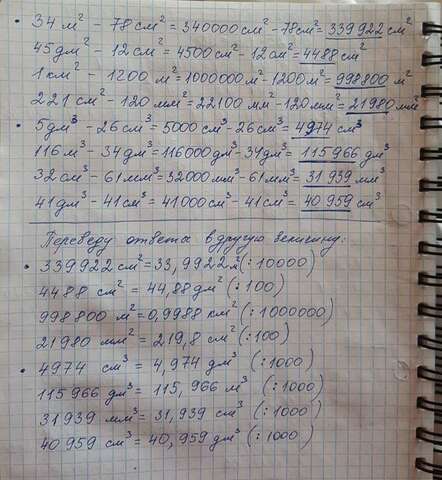 • 34 м² - 78 см² = 340000 см² - 78 см² = 339922 см²
45 дм² - 12 см² = 4500 см² - 12 см² = 4488 см²
1 км² - 1200 м² = 1000000 м² - 1200 м² = 998800 м²
221 см² - 120 мм² = 22100 мм² - 120 мм² = 21980 мм²
• 5 дм³ - 26 см³ = 5000 см³ - 26 см³ = 4974 см³
116 м³ - 34 дм³ = 116000 дм³ - 34 дм³ = 115966 дм³
32 см³ - 61 мм³ = 32000 мм³ - 61 мм³ = 31939 мм³
41 дм³ - 41 см³ = 41000 см³ - 41 см³ = 40959 см³
Переведу ответы в другую величину:
• 339922 см² = 33,9922 м² (:10000)
4488 см² = 44,88 дм² (:100)
998800 м² = 0,9988 км² (:1000000)
21980 мм² = 219,8 см² (:100)
• 4974 см³ = 4,974 дм³ (:1000)
115966 дм³ = 115,966 м³ (:1000)
31939 мм³ = 31,939 см³ (:1000)
40959 см³ = 40,959 дм³ (:1000)